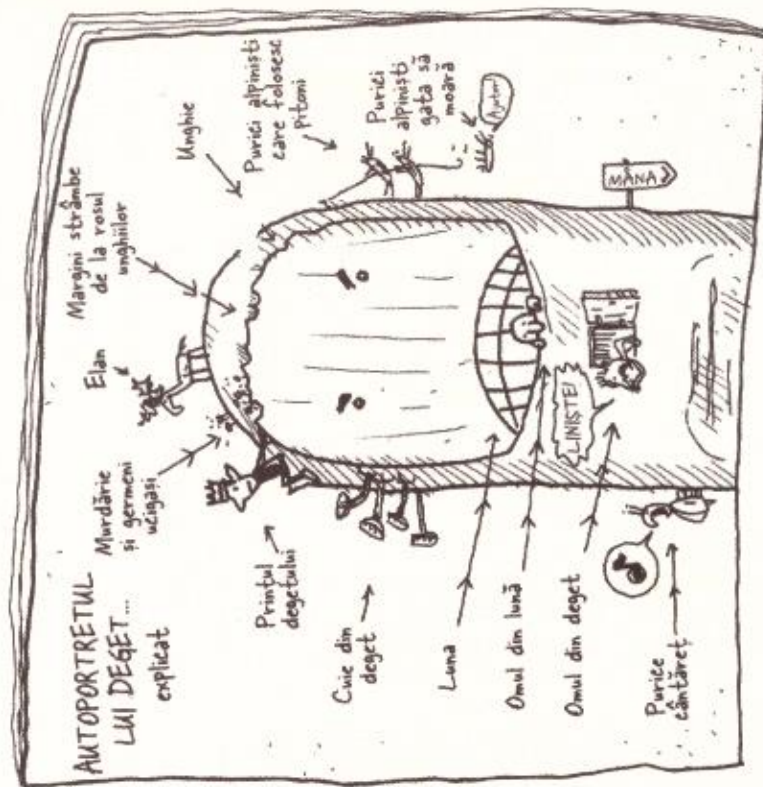 AUTOPORTRETUL
LUI DEGET...
explicat
Murdărie
și germeni
ucigași
Elan
Margini strâmbe
de la rosul
unghiilor
Unghie
Purici alpiniști
care folosesc
pitoni
Purici
alpiniști
gata să
moară
Ajutor
Prințul
degetului
Cuie din
deget
Luna
Omul din lună
Omul din deget
LINIȘTE!
Purice
cântăreț
MÂNA